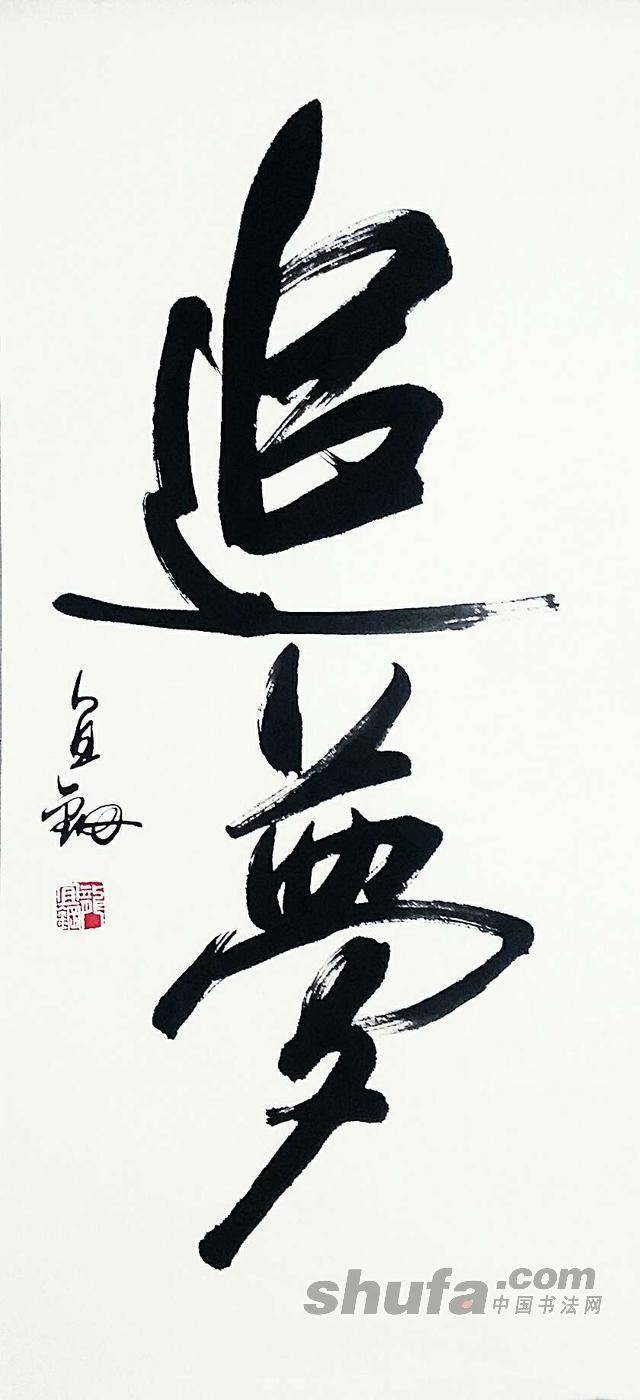 追夢
宜鋼
shufa.com
中国书法网